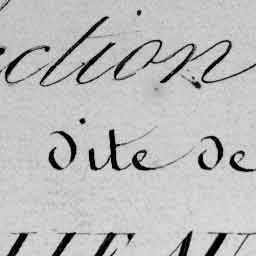 ection
dite de